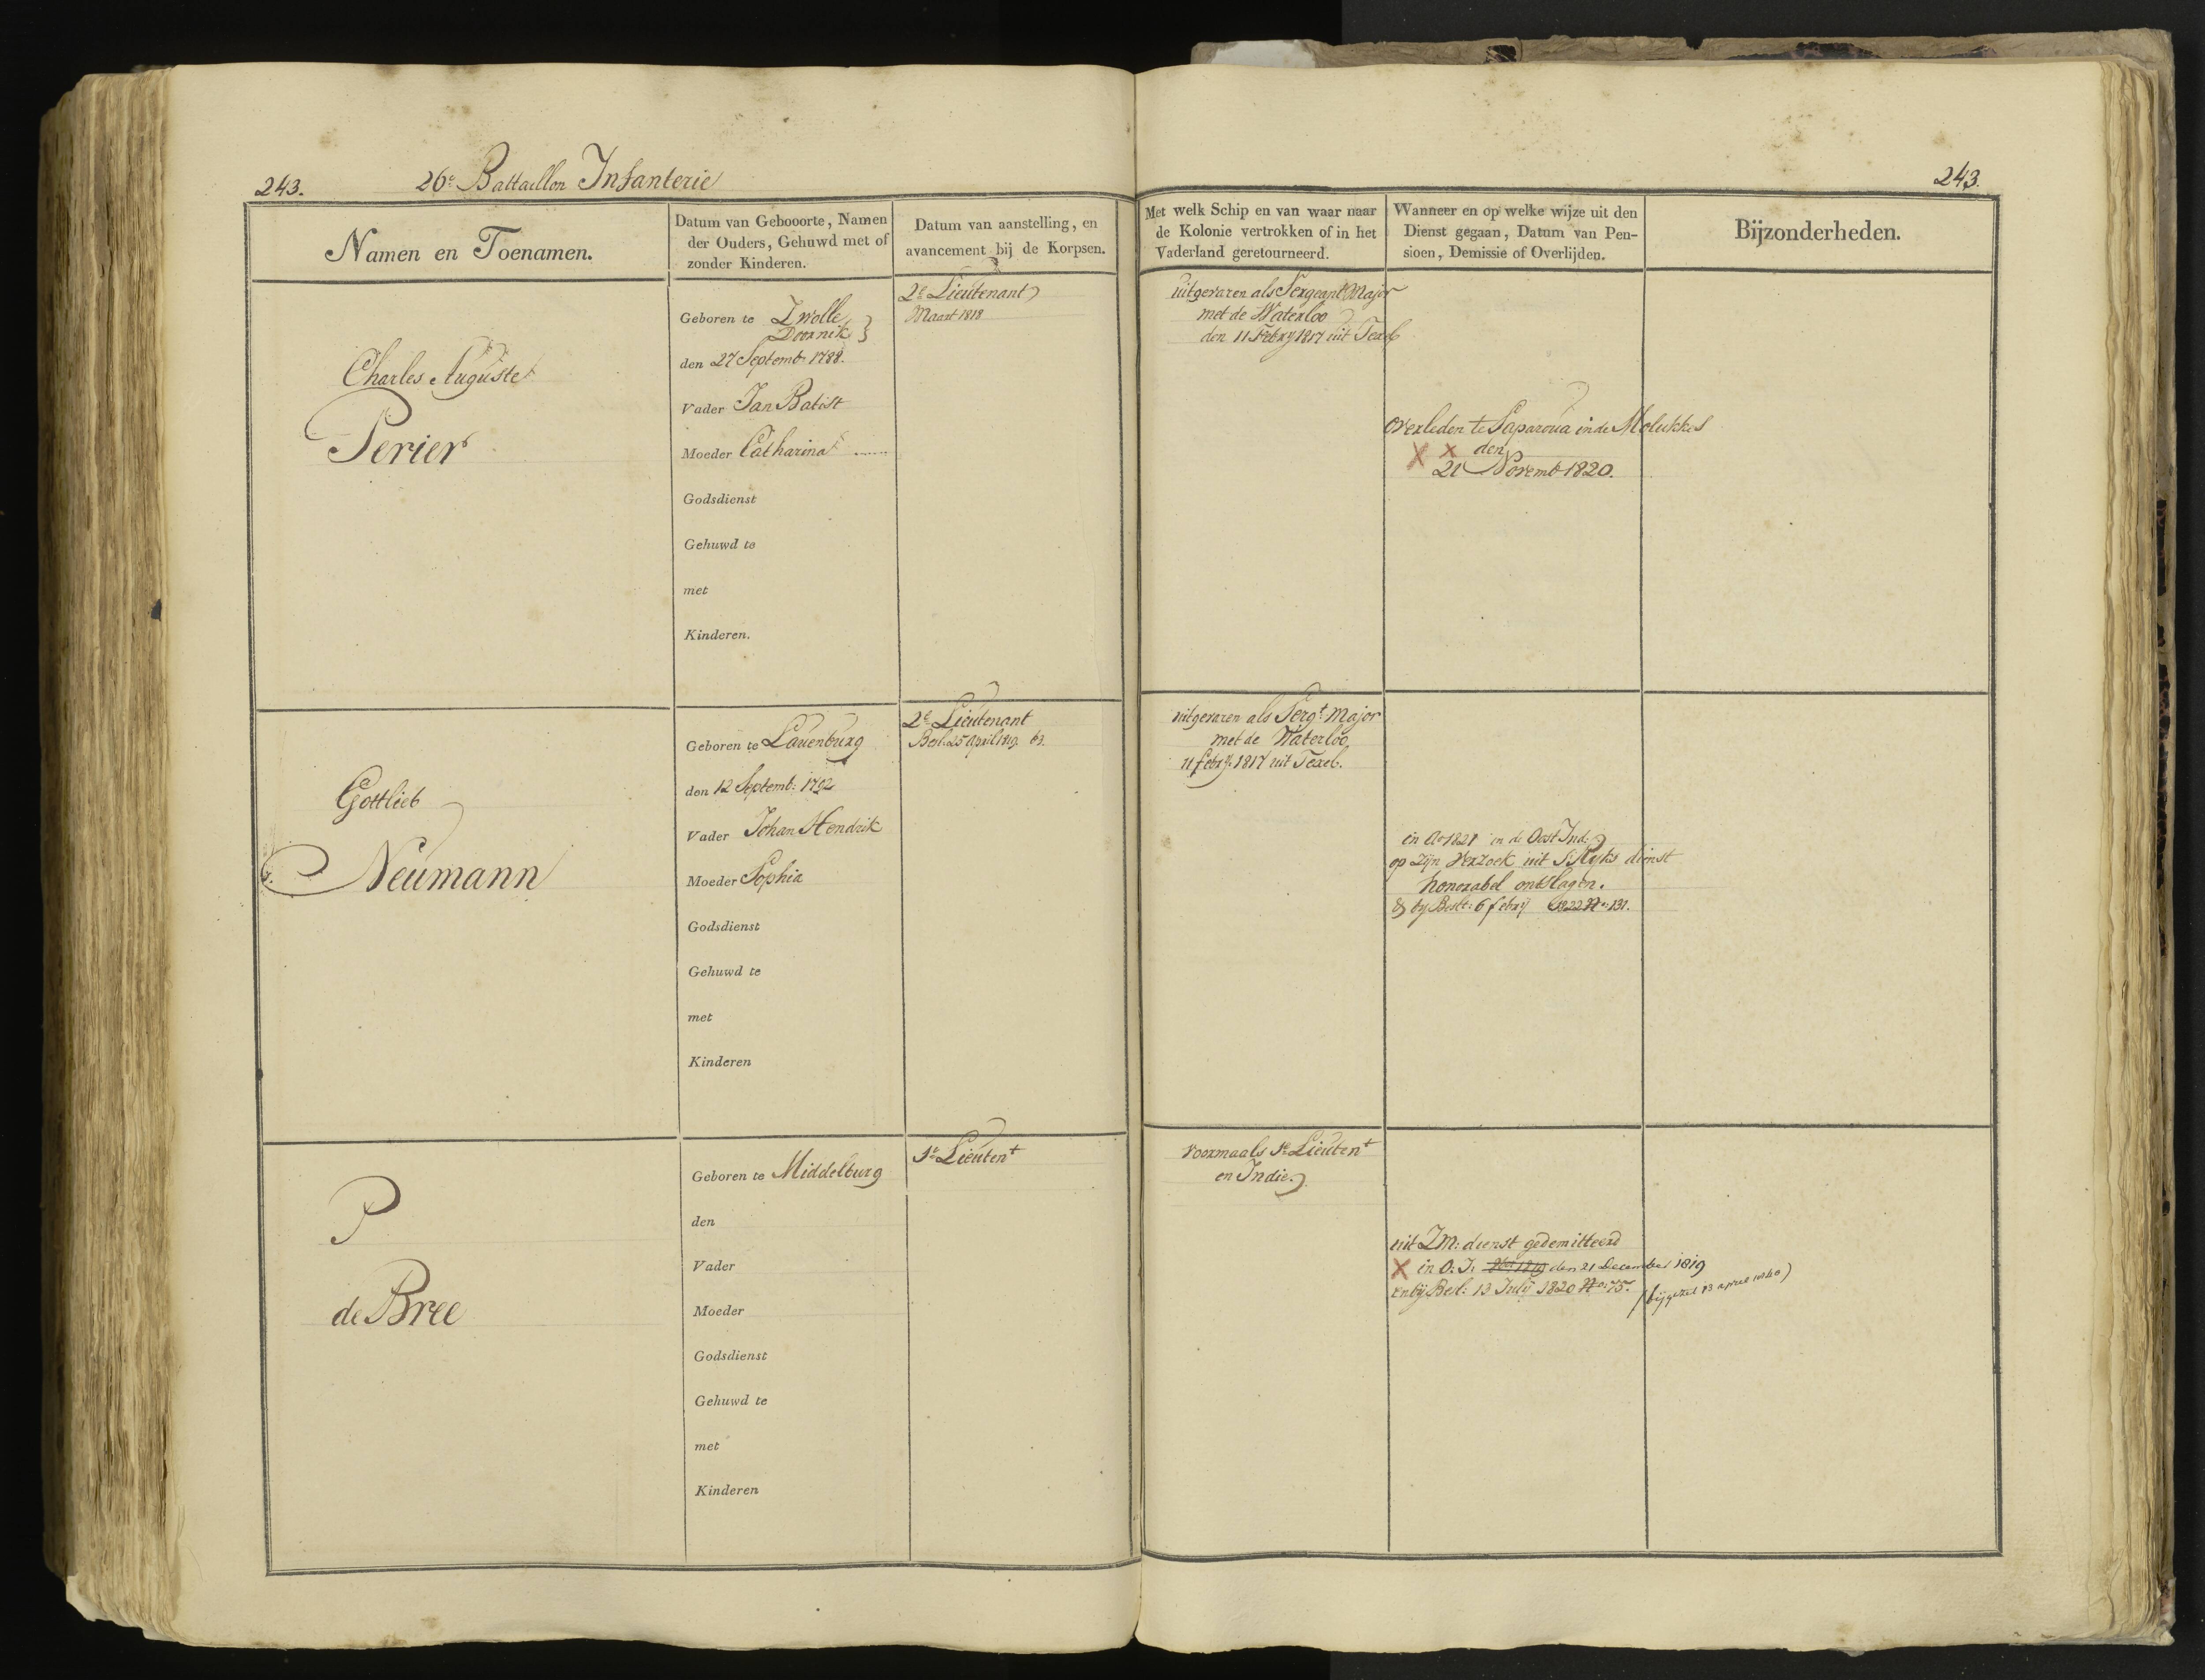 243.
26e. Battaillon Infanterie
243.
Namen en Toenamen.
Datum van Gebooorte, Namen
der Ouders, Gehuwd met of
zonder Kinderen.
Datum van aanstelling, en
avancement bij de Korpsen.
Met welk Schip en van waar naar
de Kolonie vertrokken of in het
Vaderland geretourneerd.
Wanneer en op welke wijze uit den
Dienst gegaan, Datum van Pen-
sioen, Demissie of Overlijden.
Bijzonderheden.
Charles Auguste
Perier
Geboren te Zwolle
Doornik
den 27 Septemb: 1788.
Vader Jan Batist
Moeder Catharina ......
Godsdienst
Gehuwd te
met
Kinderen.
2e Lieutenant
Maart 1818
uitgevaren als Sergeant Major
met de Waterloo
den 11 Febry 1817 uit Texel
Overleden te Saparoua in de Molukkes
den
21 Novemb 1820.
Gottlieb
Neumann
Geboren te Lauenburg
den 12 Septemb: 1792
Vader Johan Hendrik
Moeder Sophia
Godsdienst
Gehuwd te
met
Kinderen
2e Lieutenant
Besl. 25 April 1819. 63.
uitgevaren als Sergt Major
met de Waterloo
11 febry. 1817 uit Texel.
in Ao 1821 in de Oost Ind:
op zijn verzoek uit S Ryks dienst
honorabel ontslagen.
& by Beslt: 6 febry 1822 No: 131.
P
de Bree
Geboren te Middelburg
den
Vader
Moeder
Godsdienst
Gehuwd te
met
Kinderen
1e Lieutent
voormaals 1e Lieutent
en Indie.
uit ZM: dienst gedemitteerd
in O: I: den 21 December 1819
en bij Besl: 13 July 1820 No: 75.